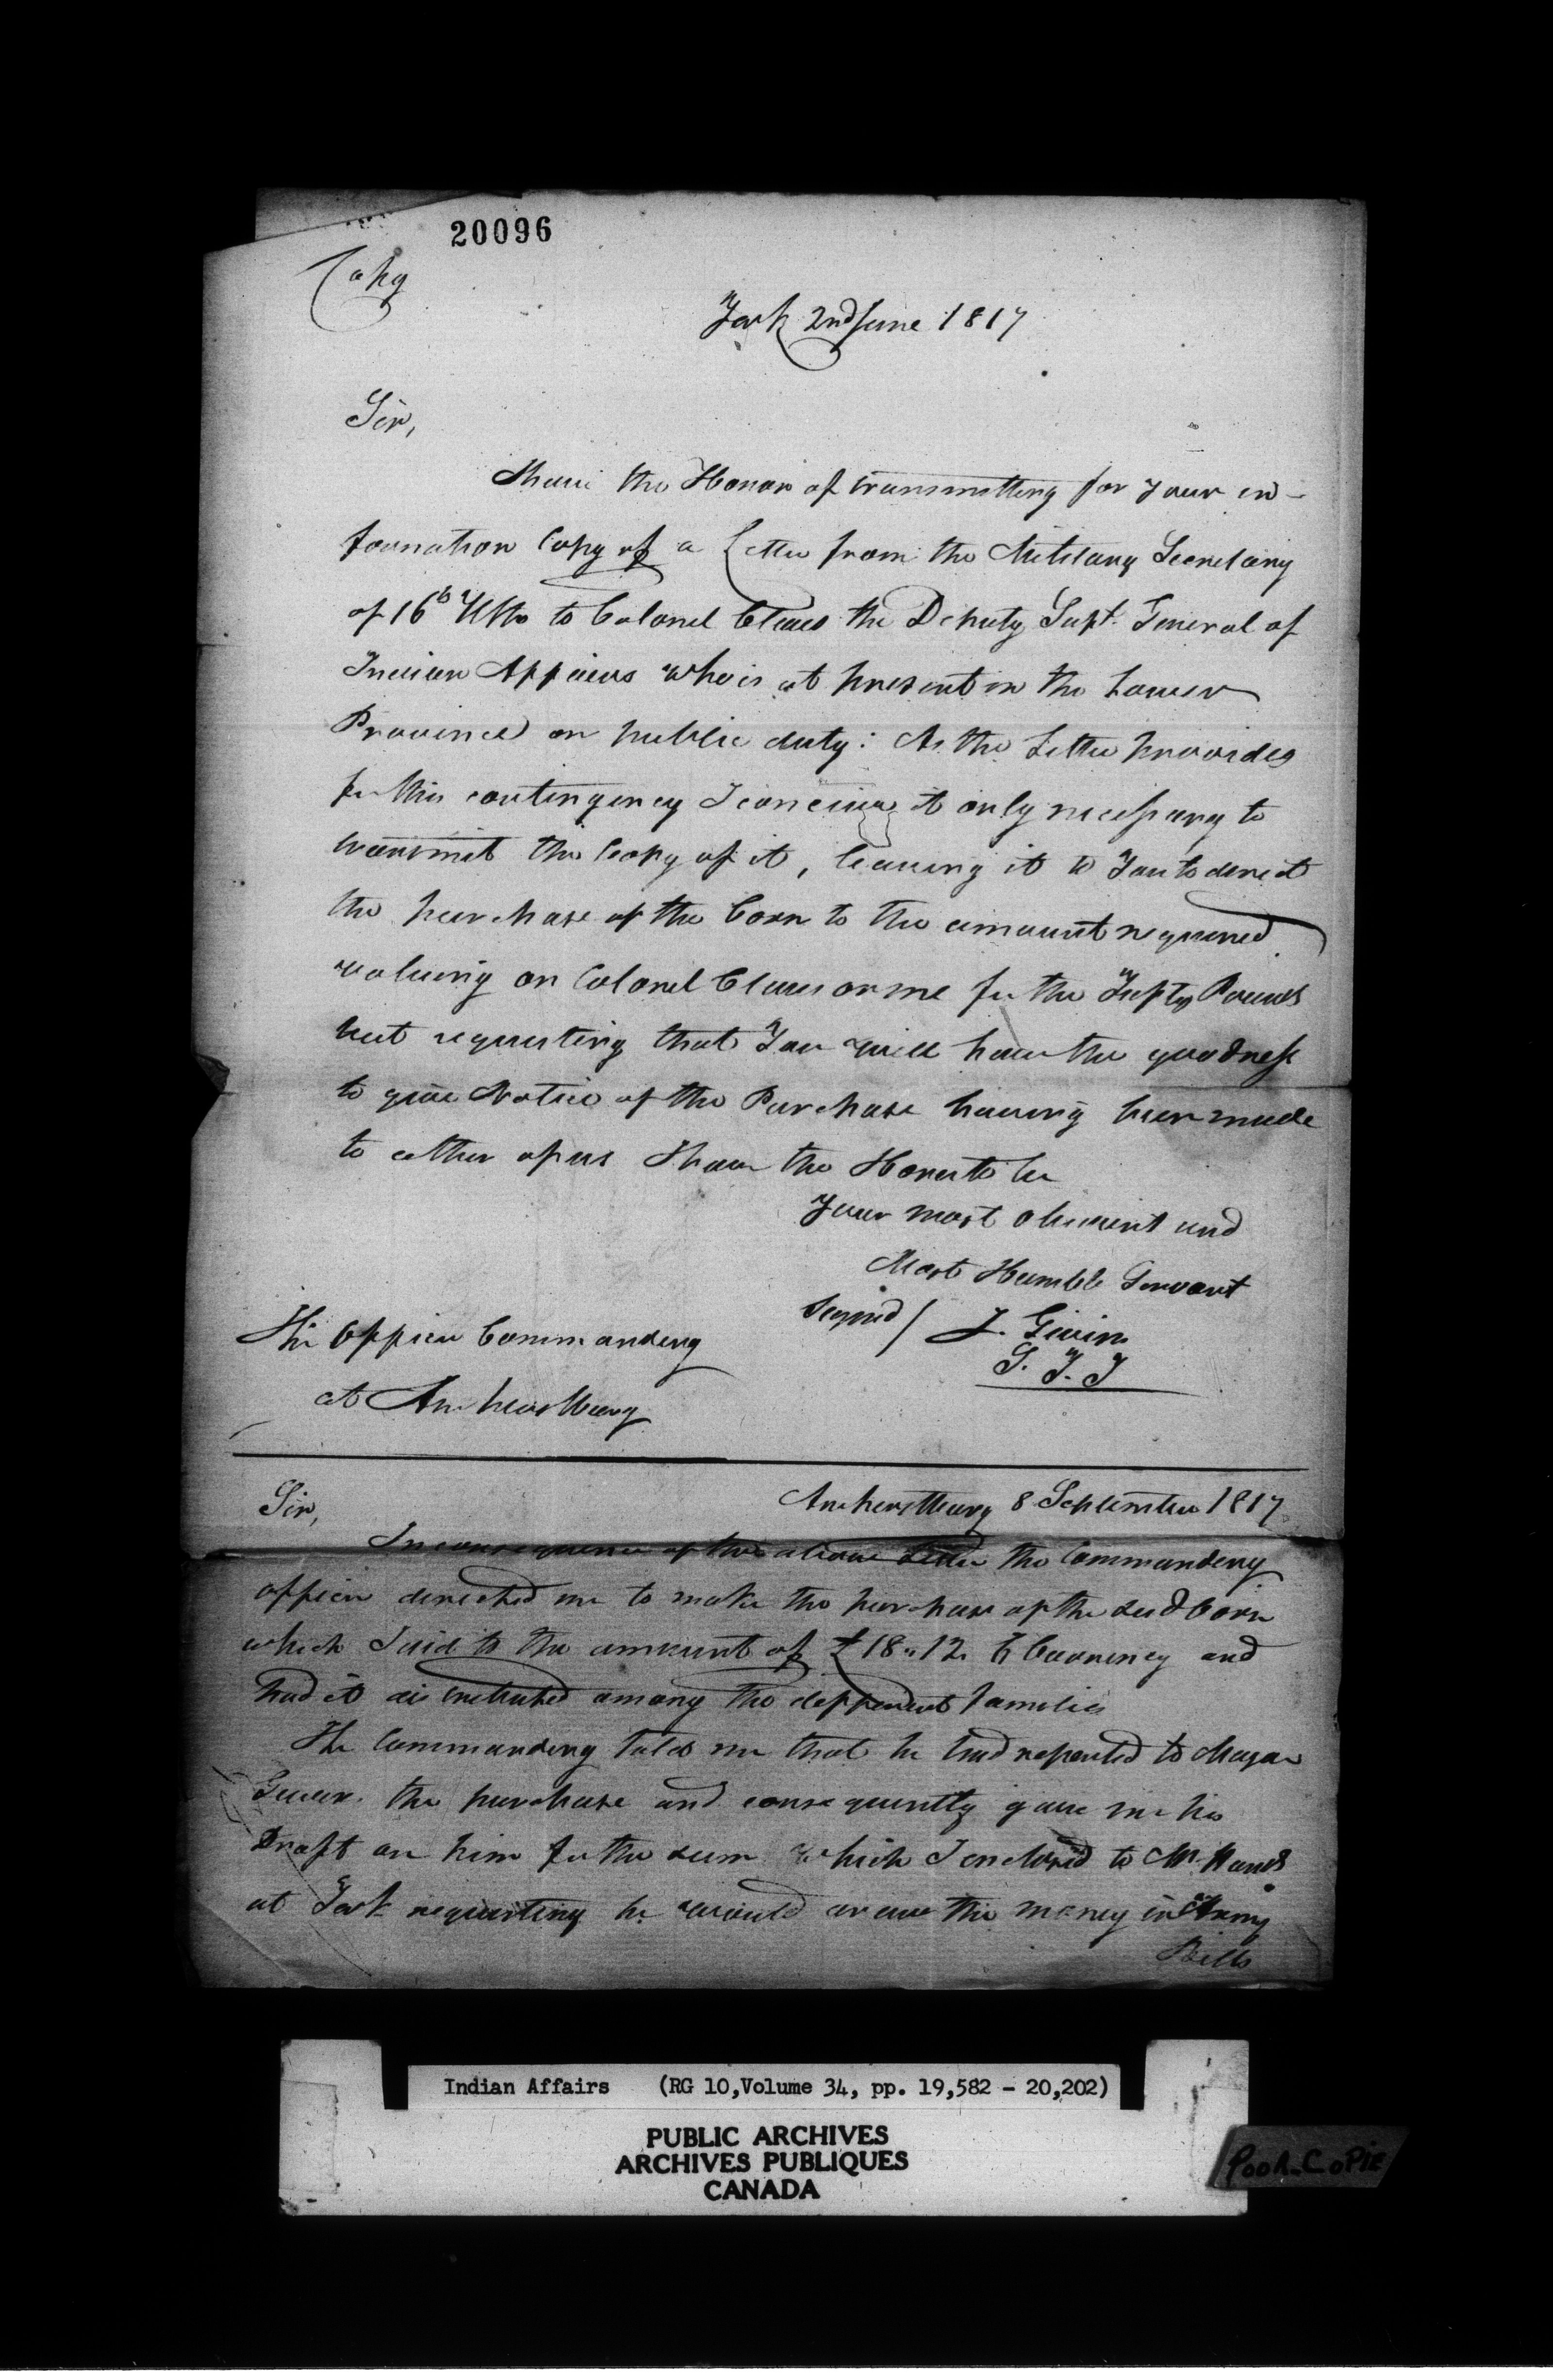 20096
Copy
York 2nd June 1817
Sir,
I have the Honor of transmitting for your in-
formation Copy of a Letter from the Military Secretary
of 16th Ulto to Colonel Claus the Deputy Supt. General of
Indian Affairs who is at present in the Lower
Province on public duty: As the Letter provides
for this contingency I conceive it only necessary to
transmit the Copy of it, leaving it to You to direct
the purchase of the Corn to the amount required
valuing on Colonel Claus or me for the Fifty Pounds
but requesting that You will have the goodness
to give Notice of the Purchase having been made
to either of us I have the Honor to be
Your most obedient and
Most Humble Servant
Signed / J. Givins
The Officer Commanding
at Amherstburg
Amherstburg 8 September 1817
Sir,
In consequence of the above Letter the Commanding
officer directed me to make the purchase of the seed Corn
which I did to the amount of £18..12. Currency and
had it distributed among the different families
The Commanding told me that he had reported to Major
Givins the purchase and consequently gave me his
Draft on him for the sum which I enclosed to Mr. Hands
at York requesting he would receive the money in Army
Bills
Indian Affairs (RG 10, Volume 34, pp. 19,582 - 20,202)
PUBLIC ARCHIVES
ARCHIVES PUBLIQUES
CANADA
POOR COPIE